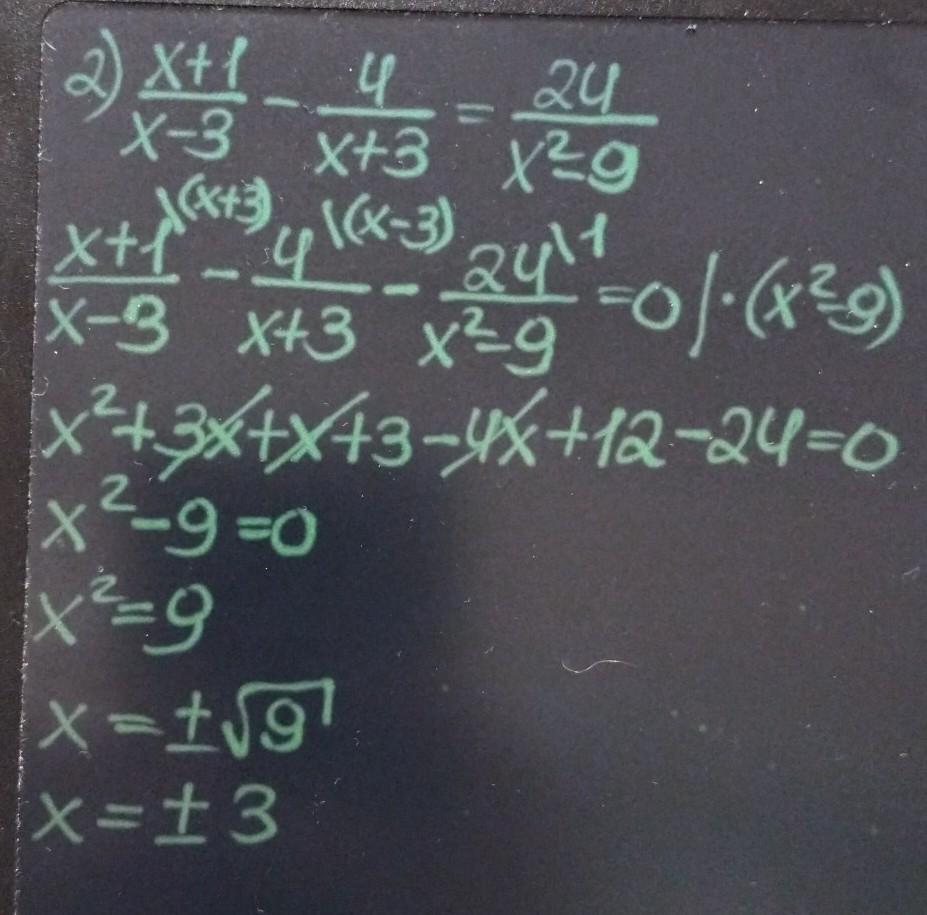 2) (x+1)/(x-3) - 4/(x+3) = 24/(x²-9)
(x+1)/(x-3) \(x+3) - 4/(x+3) \(x-3) - 24/(x²-9) \1 = 0 | · (x²-9)
x² + 3x + x + 3 - 4x + 12 - 24 = 0
x² - 9 = 0
x² = 9
x = ± √9
x = ± 3